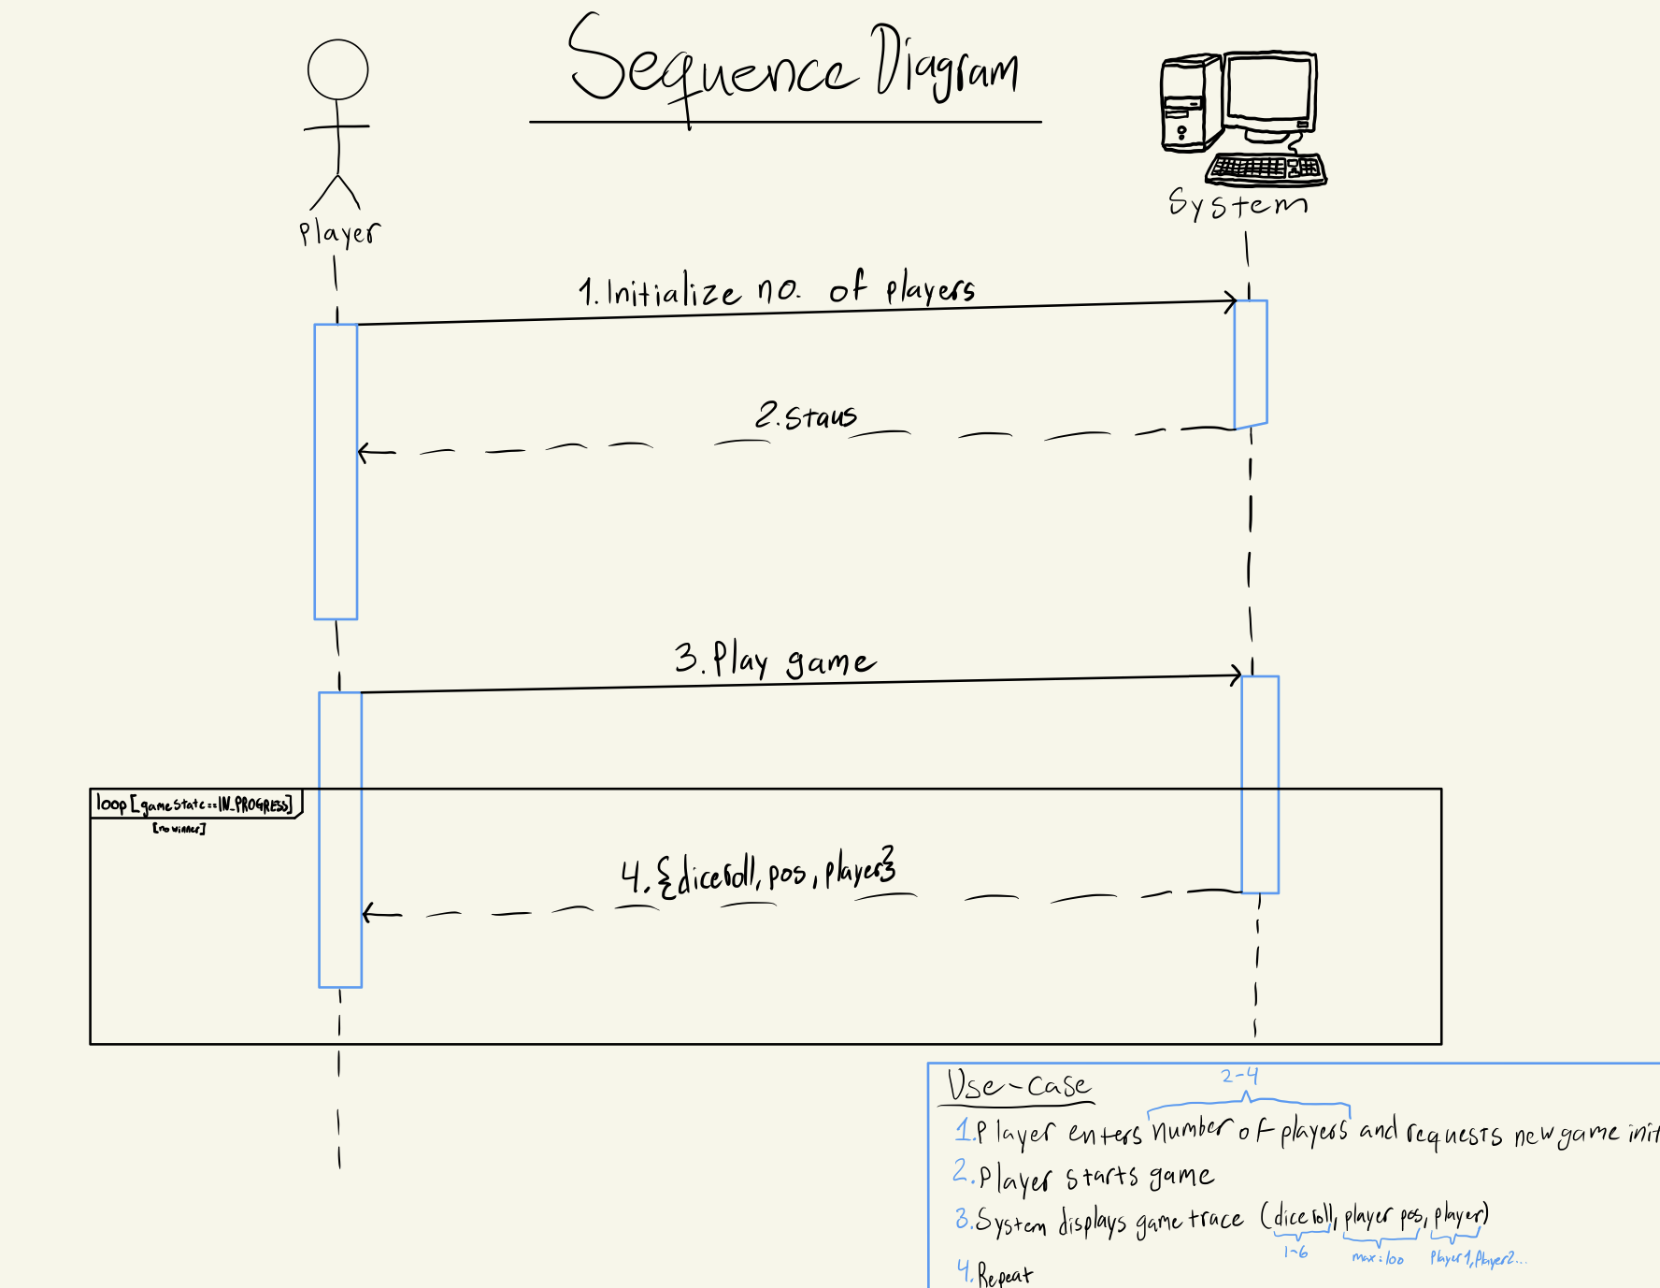 Sequence Diagram
Player
System
1. Initialize no. of players
2. Staus
3. Play game
loop [gamestate==IN_PROGRESS]
[no winner]
4. {diceroll, pos, player}
Use-case
2-4
1. Player enters number of players and requests new game init
2. Player starts game
3. System displays game trace (diceroll, player pos, player)
1-6 max:100 Player1, Player2...
4. Repeat